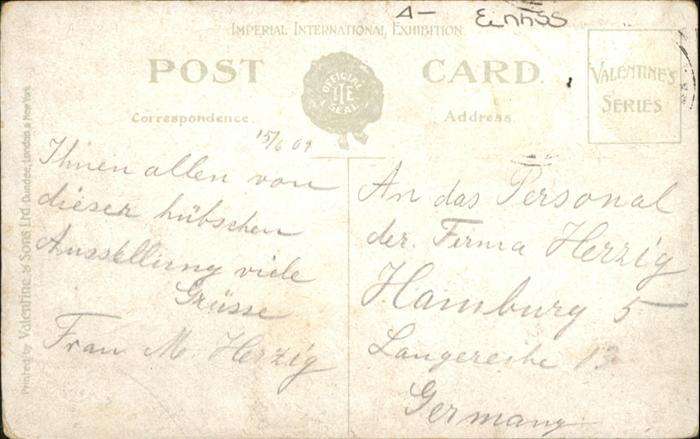 IMPERIAL INTERNATIONAL EXHIBITION.
POST CARD.
OFFICIAL
IIE
SEAL
VALENTINE'S
SERIES
Correspondence.
Address.
15/6 09
Ihnen allen von
dieser hübschen
Ausstellung viele
Grüsse
Frau M Herzig
An das Personal
der. Firma Herzig
Hamburg 5
Langereihe 13
Germany
Printed by Valentine & Sons Ltd. Dundee, London & New York.